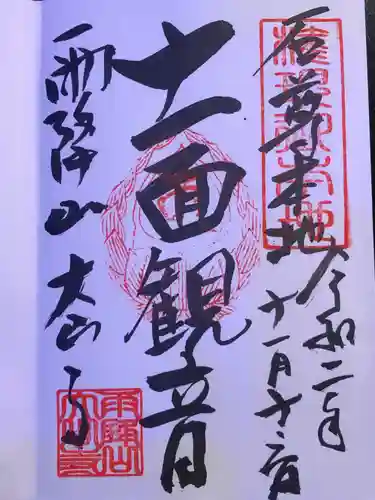 石尊本地
令和二年
十一月十二日
十一面観音
雨降山大山寺